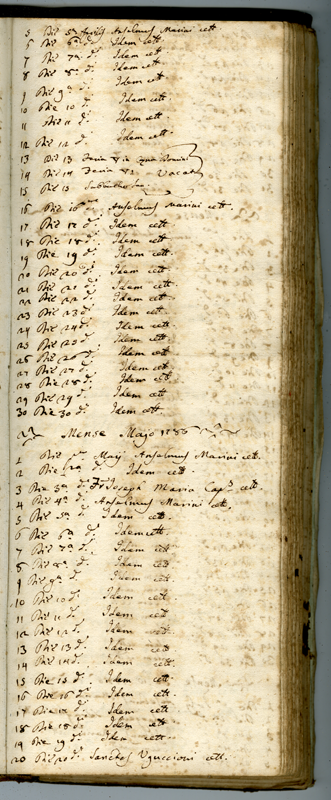 5 Die 5ª Aprilis Anselmus Marini cett
6 Die 6ª d.ª Idem cett
7 Die 7ª d.ª Idem cett
8 Die 8ª d.ª Idem cett
9 Die 9ª d.ª Idem cett
10 Die 10 d.ª Idem cett.
11 Die 11 d.ª Idem cett.
12 Die 12 d.ª Idem cett.
13 Die 13 Feria in Domini
14 Die 14 Feria Vacat
15 Die 15 Sabbatho
16 Die 16 Anselmus Marini cett.
17 Die 17 d.ª Idem cett
18 Die 18 d.ª Idem cett
19 Die 19 d.ª Idem cett.
20 Die 20 d.ª Idem cett
21 Die 21 d.ª Idem cett
22 Die 22 d.ª Idem cett.
23 Die 23 d.ª Idem cett
24 Die 24 d.ª Idem cett
25 Die 25 d.ª Idem cett
26 Die 26 d.ª Idem cett
27 Die 27 d.ª Idem cett
28 Die 28 d.ª Idem cett
29 Die 29 d.ª Idem cett
30 Die 30 d.ª Idem cett
Mense Majo
1 Die pª Maij Anselmus Marini cett.
2 Die 2ª d.ª Idem cett
3 Die 3ª d.ª Fr. Joseph Maria Cap.s cett.
4 Die 4ª d. Anselmus Marini cett.
5 Die 5ª d.ª Idem cett.
6 Die 6ª d.ª Idem cett.
7 Die 7ª d.ª Idem cett
8 Die 8ª d.ª Idem cett
9 Die 9ª d.ª Idem cett
10 Die 10 d.ª Idem cett.
11 Die 11 d.ª Idem cett.
12 Die 12 d.ª Idem cett.
13 Die 13 d.ª Idem cett
14 Die 14 d.ª Idem cett
15 Die 15 d.ª Idem cett.
16 Die 16 d.ª Idem cett.
17 Die 17 d.ª Idem cett
18 Die 18 d.ª Idem cett
19 Die 19 d.ª Idem cett.
20 Die 20 d.ª Sanctes Uguccioni cett.